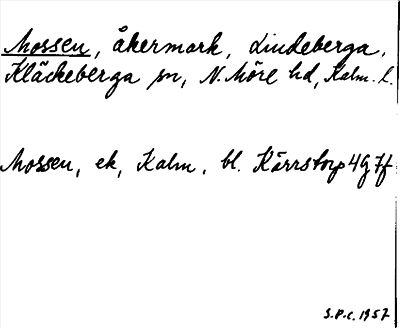 Mossen, åkermark, Lindeberga,
Kläckeberga sn, N. Möre hd, Kalm. l.
Mossen, ek, Kalm, bl. Kärrstorp 4G7f
S.P.C. 1957